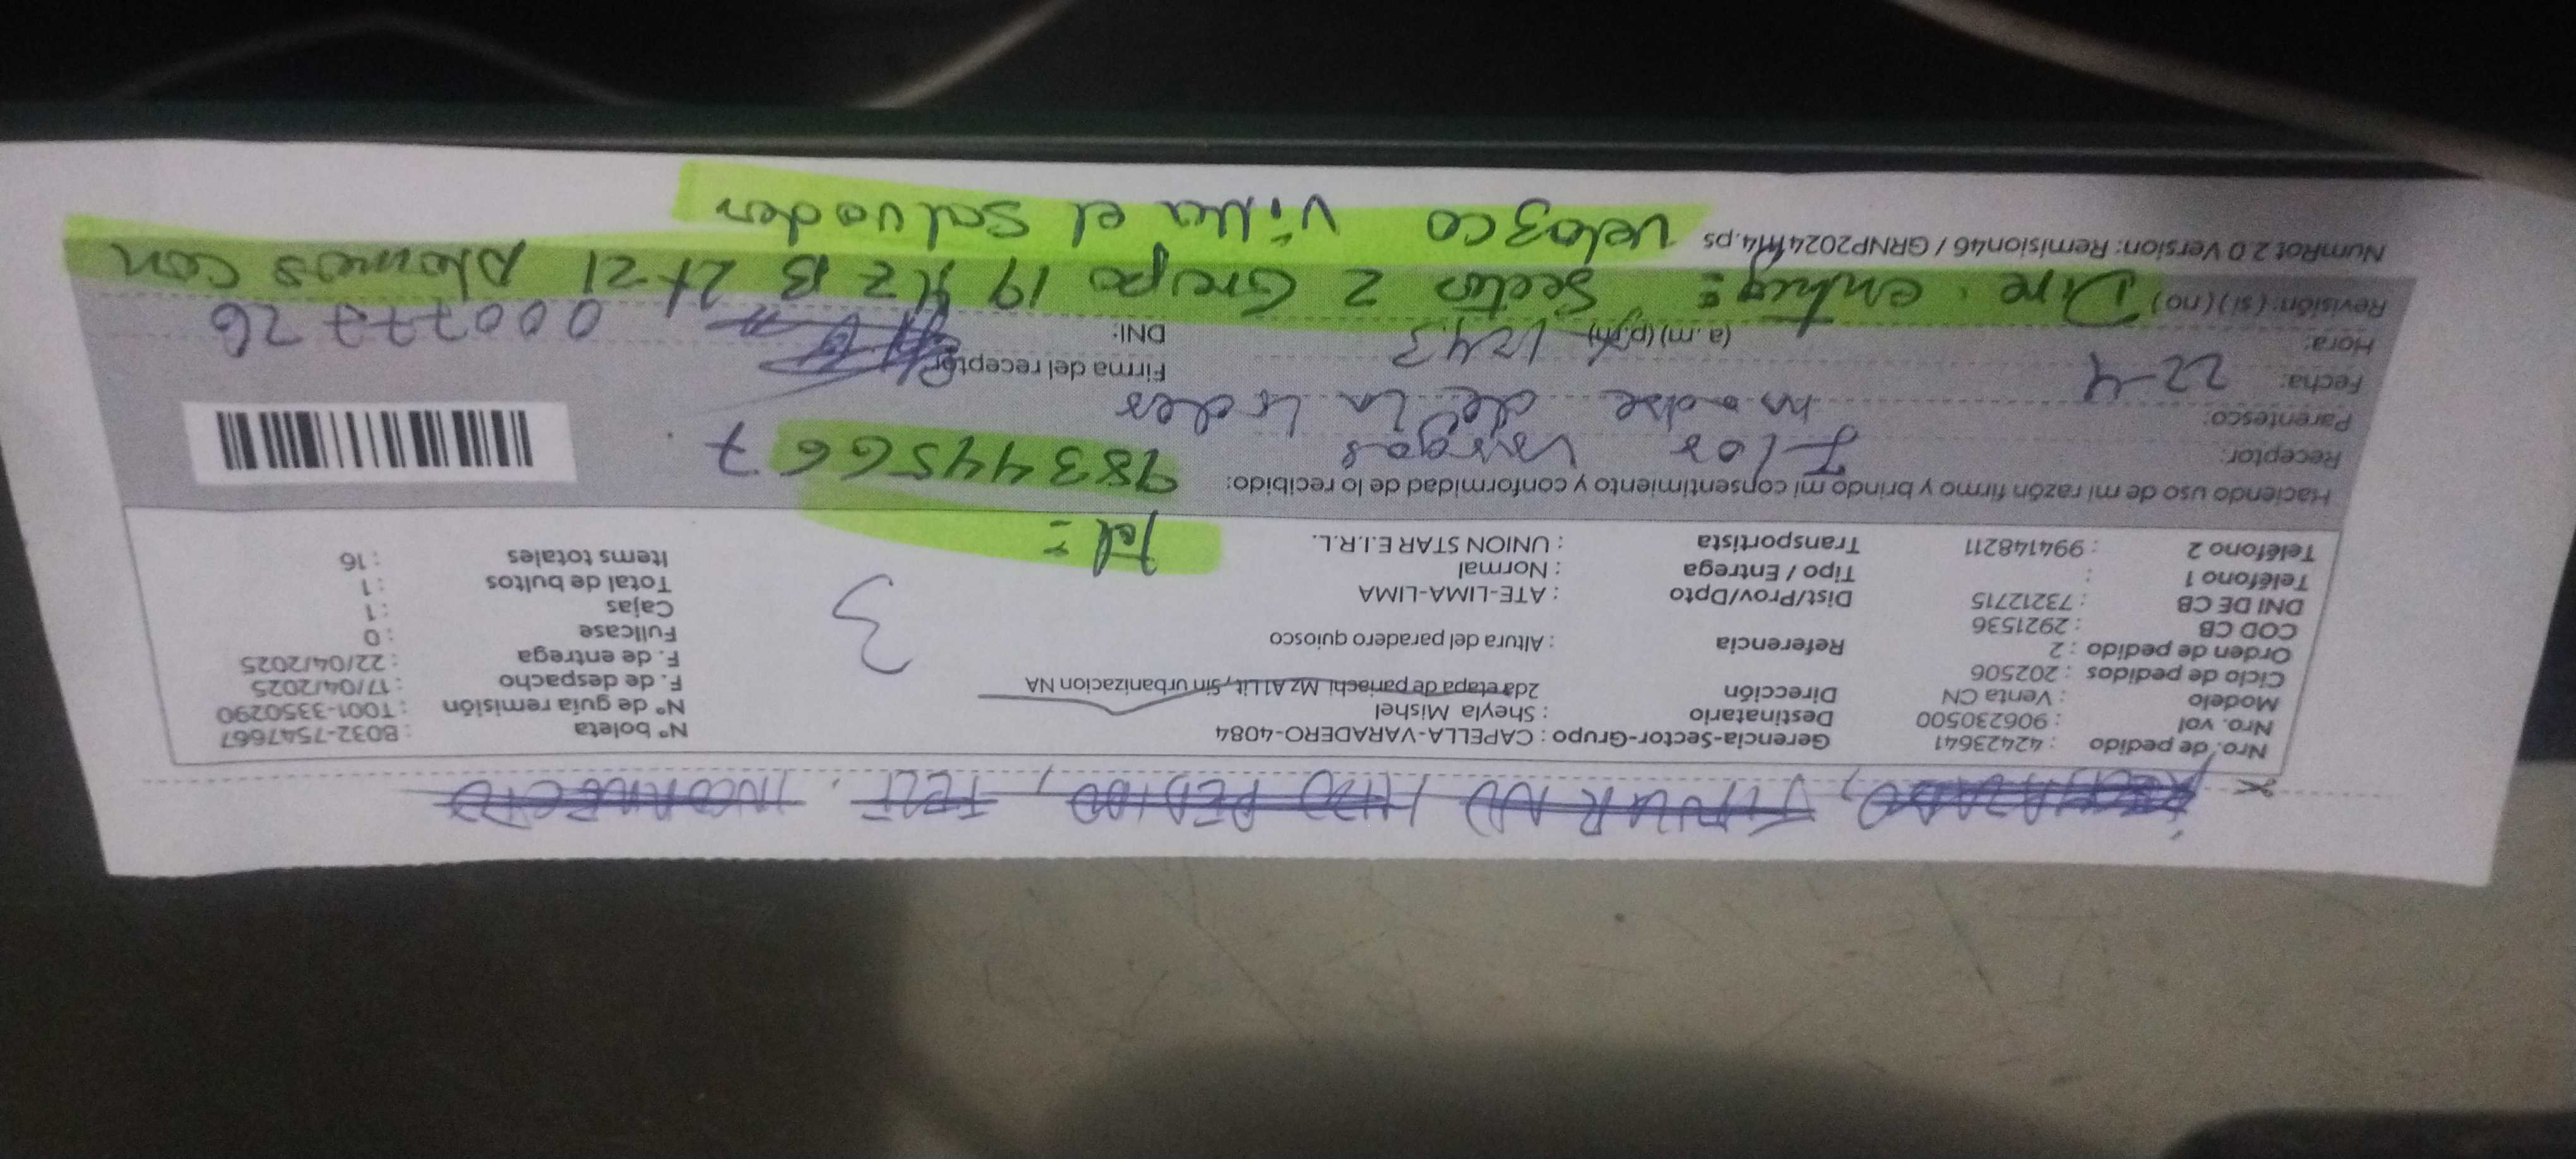 RECHAZADO, JUNIOR NO HIZO PEDIDO, TELF. INCORRECTO
Nro. de pedido : 42423641 Gerencia-Sector-Grupo : CAPELLA-VARADERO-4084 N° boleta : B032-7547667
Nro. vol : 906230500 Destinatario : Sheyla Mishel N° de guía remisión : T001-3350290
Modelo : Venta CN Dirección 2da etapa de pariachi, Mz A1 Lit, Sin urbanizacion NA F. de despacho : 17/04/2025
Ciclo de pedidos : 202506 F. de entrega : 22/04/2025
Orden de pedido : 2 Referencia : Altura del paradero quiosco Fullcase : 0
COD CB : 2921536 Cajas : 1 3
DNI DE CB : 73212715 Dist/Prov/Dpto : ATE-LIMA-LIMA Total de bultos : 1
Teléfono 1 : Tipo / Entrega : Normal Items totales : 16
Teléfono 2 : 994148211 Transportista : UNION STAR E.I.R.L. Tel =
Haciendo uso de mi razón firmo y brindo mi consentimiento y conformidad de lo recibido: 983445667
Receptor: Flor Vargas
Parentesco: madre de la lider
Fecha: 22-4 Firma del receptor
Hora: (a.m) (p.m) 1243 DNI: 00077726
Revisión: (si) (no) Dire. entrega = Sector 2 Grupo 19 Mz B Lt 21 plomos con
NumRot 2.0 Version: Remision46 / GRNP20241114.ps velozco Villa el Salvador